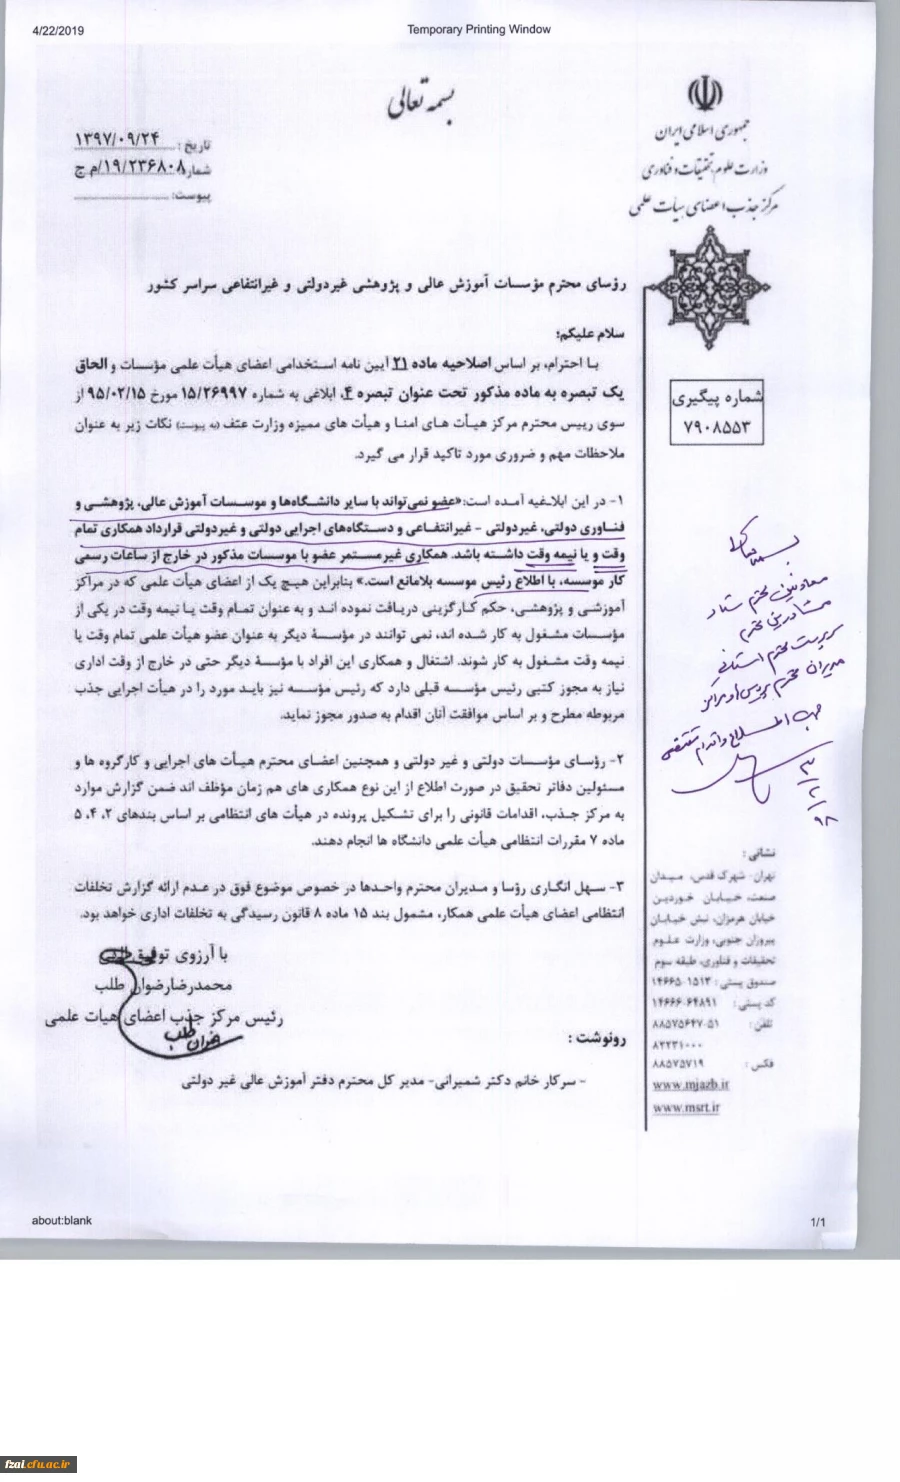 4/22/2019
Temporary Printing Window
بسمه تعالی
جمهوری اسلامی ایران
وزارت علوم، تحقیقات و فناوری
مرکز جذب اعضای هیات علمی
تاریخ: ۱۳۹۷/۰۹/۲۴
شماره: ۱۹/۲۳۶۸۰۸/م ج
پیوست:
رؤسای محترم مؤسسات آموزش عالی و پژوهشی غیردولتی و غیرانتفاعی سراسر کشور
سلام علیکم؛
با احترام، بر اساس اصلاحیه ماده ۲۱ آیین نامه استخدامی اعضای هیأت علمی مؤسسات و الحاق
یک تبصره به ماده مذکور تحت عنوان تبصره ۴، ابلاغی به شماره ۱۵/۲۶۹۹۷ مورخ ۹۵/۰۲/۱۵ از
سوی رییس محترم مرکز هیأت های امنا و هیأت های ممیزه وزارت عتف (به پیوست) نکات زیر به عنوان
ملاحظات مهم و ضروری مورد تاکید قرار می گیرد.
شماره پیگیری
۷۹۰۸۵۵۳
۱- در این ابلاغیه آمده است:«عضو نمی‌تواند با سایر دانشگاه‌ها و موسسات آموزش عالی، پژوهشی و
فناوری دولتی، غیردولتی - غیرانتفاعی و دستگاه‌های اجرایی دولتی و غیردولتی قرارداد همکاری تمام
وقت و یا نیمه وقت داشته باشد. همکاری غیرمستمر عضو با موسسات مذکور در خارج از ساعات رسمی
کار موسسه، با اطلاع رئیس موسسه بلامانع است.» بنابراین هیچ یک از اعضای هیأت علمی که در مراکز
آموزشی و پژوهشی، حکم کارگزینی دریافت نموده اند و به عنوان تمام وقت یا نیمه وقت در یکی از
مؤسسات مشغول به کار شده اند، نمی توانند در مؤسسهٔ دیگر به عنوان عضو هیأت علمی تمام وقت یا
نیمه وقت مشغول به کار شوند. اشتغال و همکاری این افراد با مؤسسهٔ دیگر حتی در خارج از وقت اداری
نیاز به مجوز کتبی رئیس مؤسسه قبلی دارد که رئیس مؤسسه نیز باید مورد را در هیأت اجرایی جذب
مربوطه مطرح و بر اساس موافقت آنان اقدام به صدور مجوز نماید.
معاونین محترم ستاد
مشاورین محترم
سرپرست محترم استانی
مدیران محترم پردیس و مراکز
جهت اطلاع و اقدام مقتضی
۹۸/۲/۳
۲- رؤسای مؤسسات دولتی و غیر دولتی و همچنین اعضای محترم هیأت های اجرایی و کارگروه ها و
مسئولین دفاتر تحقیق در صورت اطلاع از این نوع همکاری های هم زمان مؤظف اند ضمن گزارش موارد
به مرکز جذب، اقدامات قانونی را برای تشکیل پرونده در هیأت های انتظامی بر اساس بندهای ۲، ۴، ۵
ماده ۷ مقررات انتظامی هیأت علمی دانشگاه ها انجام دهند.
۳- سهل انگاری رؤسا و مدیران محترم واحدها در خصوص موضوع فوق در عدم ارائه گزارش تخلفات
انتظامی اعضای هیأت علمی همکار، مشمول بند ۱۵ ماده ۸ قانون رسیدگی به تخلفات اداری خواهد بود.
با آرزوی توفیق الهی
محمدرضا رضوان طلب
رئیس مرکز جذب اعضای هیات علمی
رونوشت :
- سرکار خانم دکتر شمیرانی- مدیر کل محترم دفتر آموزش عالی غیر دولتی
نشانی :
تهران- شهرک قدس، میدان
صنعت، خیابان خوردین
خیابان هرمزان، نبش خیابان
پیروزان جنوبی، وزارت علوم
تحقیقات و فناوری، طبقه سوم
صندوق پستی : ۱۵۱۳-۱۴۶۶۵
کد پستی : ۶۴۸۹۱-۱۴۶۶۶
تلفن : ۵۱-۸۸۵۷۵۶۴۷
۸۲۲۳۱۰۰۰
فکس : ۸۸۵۷۵۷۱۹
www.mjazb.ir
www.msrt.ir
about:blank
1/1
fzai.cfu.ac.ir